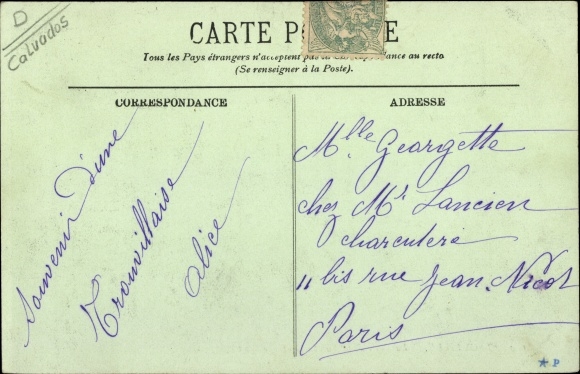 D
Calvados
CARTE PO E
Tous les Pays étrangers n'acceptent pas la Correspondance au recto
(Se renseigner à la Poste).
CORRESPONDANCE
ADRESSE
Souvenir d'une
Trouvillaise
Alice
Mlle Georgette
chez Mr Lancien
charcutere
11 bis rue Jean Nicot
Paris
P